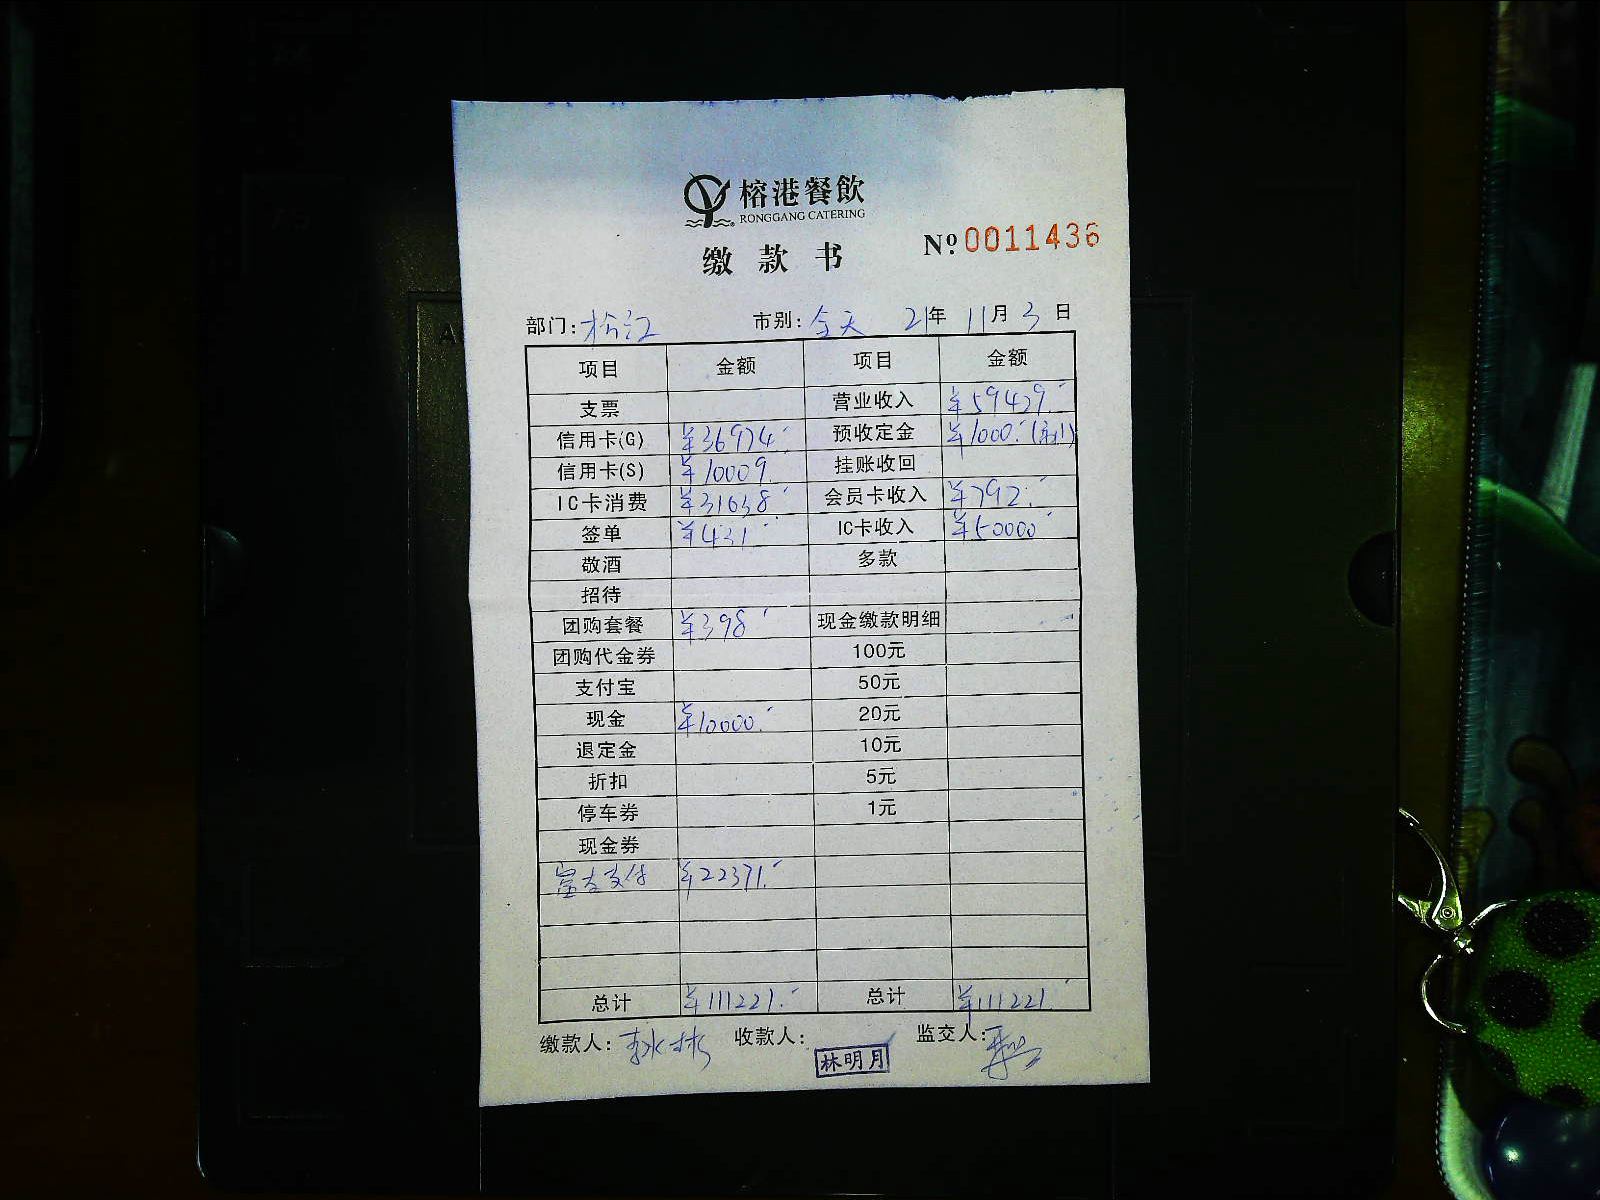 榕港餐飲
RONGGANG CATERING
缴款书 № 0011436
部门: 松江 市别: 全天 21年 11月 3日
项目 金额 项目 金额
支票 营业收入 ¥59429.-
信用卡(G) ¥36974.- 预收定金 ¥1000.-
信用卡(S) ¥10009. 挂账收回
IC卡消费 ¥31038.- 会员卡收入 ¥792.-
签单 ¥431.- IC卡收入 ¥50000.-
敬酒 多款
招待
团购套餐 ¥398.- 现金缴款明细
团购代金券 100元
支付宝 50元
现金 ¥10000.- 20元
退定金 10元
折扣 5元
停车券 1元
现金券
富友支付 ¥22371.-
总计 ¥111221.- 总计 ¥111221.-
缴款人: 收款人: 林明月 监交人: